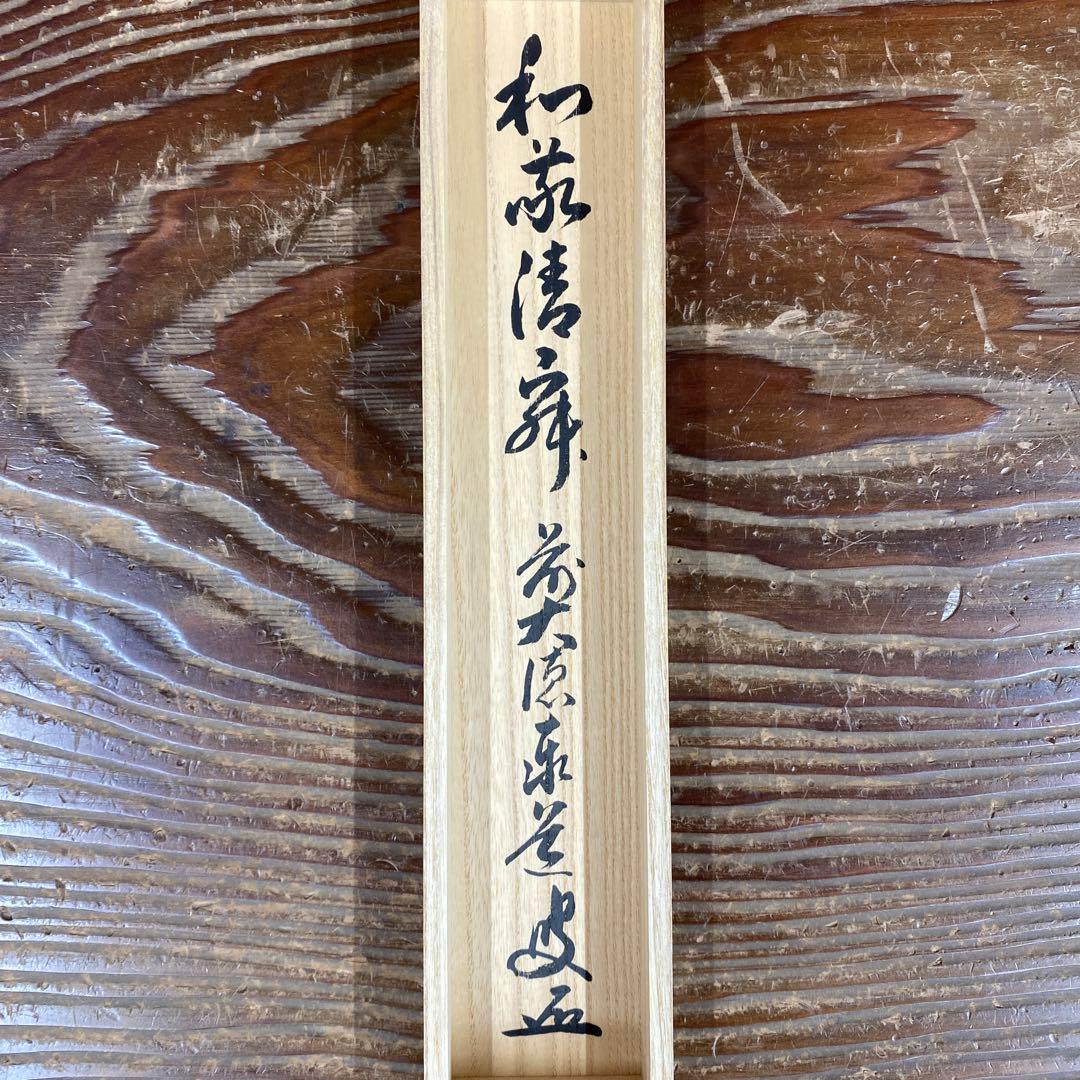 和敬清寂 前大徳泰道叟